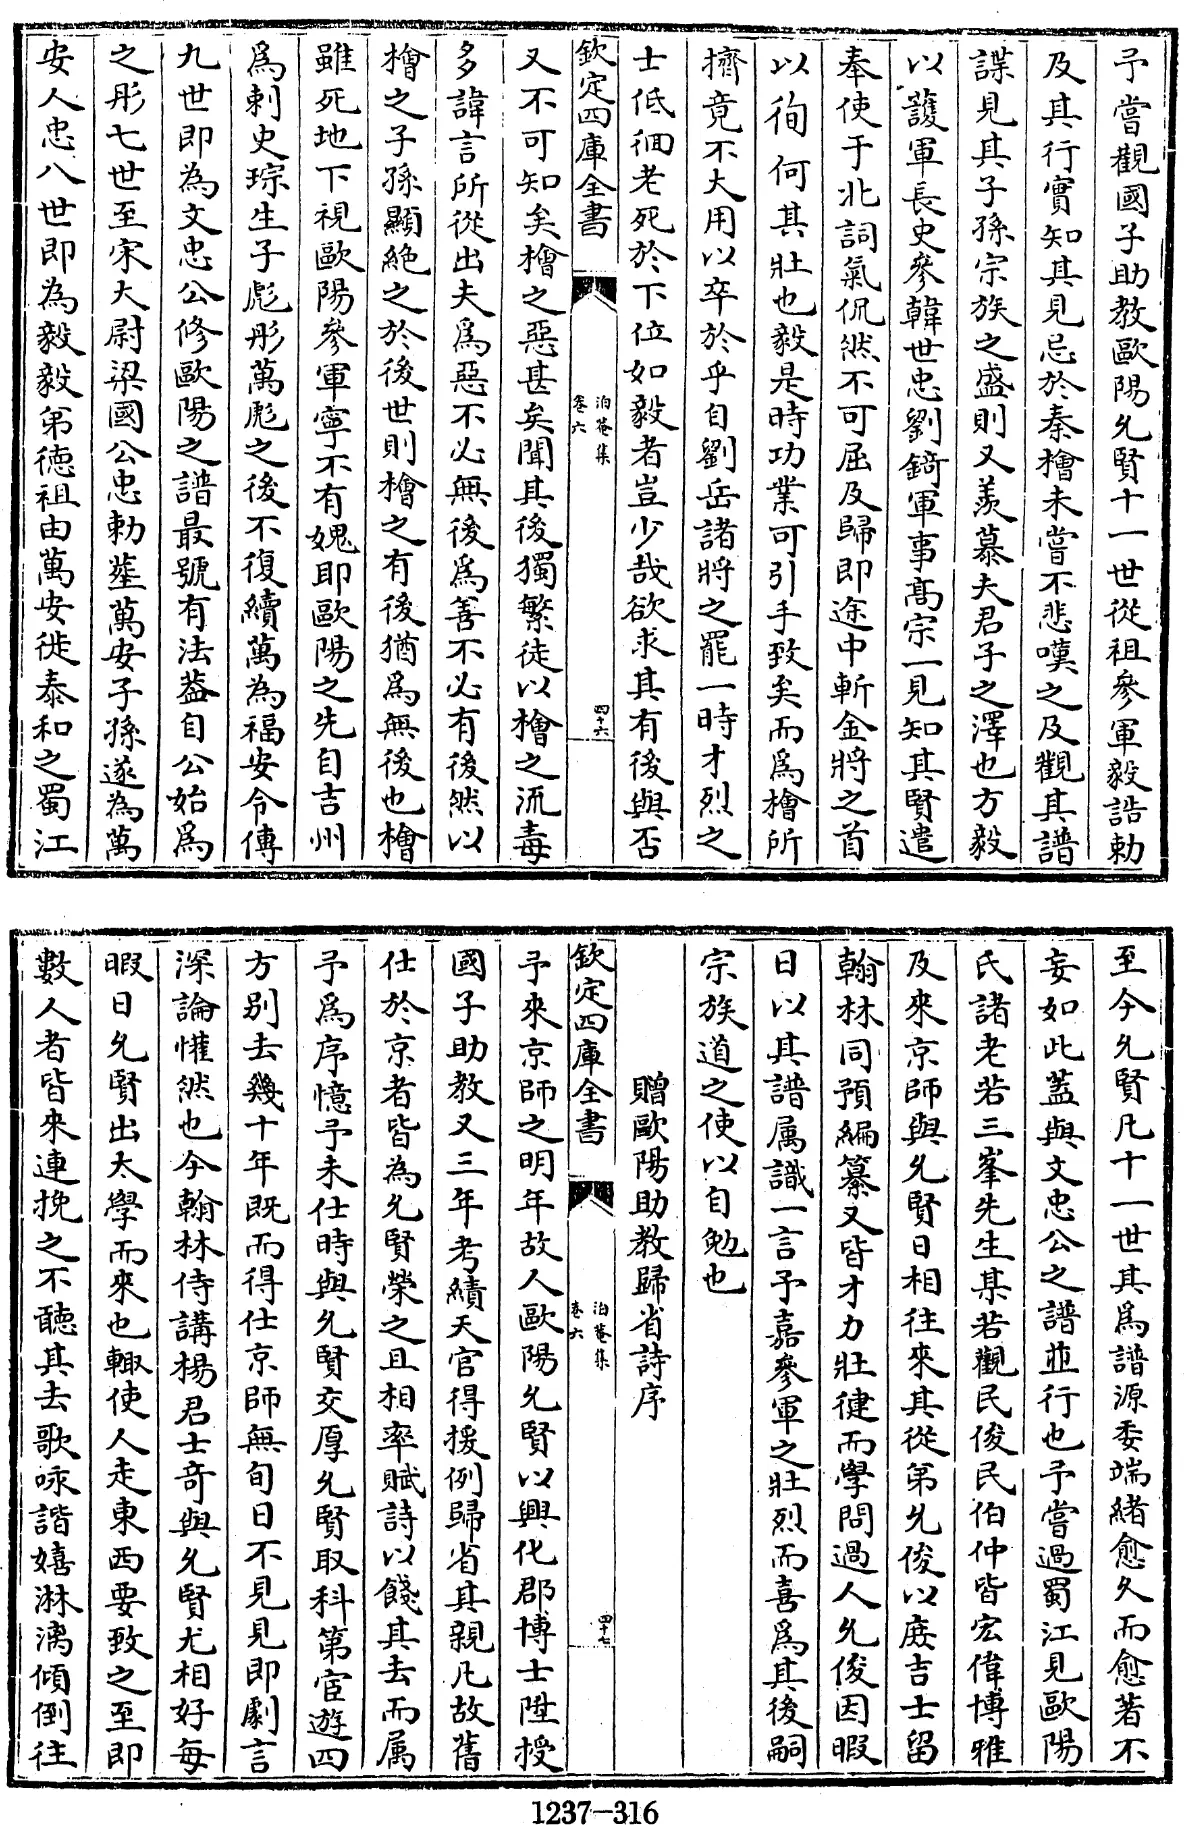 予嘗觀國子助教歐陽允賢十一世從祖參軍毅誥勅
及其行實知其見忌於秦檜未嘗不悲嘆之及觀其譜
諜見其子孫宗族之盛則又羨慕夫君子之澤也方毅
以護軍長史參韓世忠劉錡軍事髙宗一見知其賢遣
奉使于北詞氣侃然不可屈及歸即途中斬金將之首
以徇何其壯也毅是時功業可引手致矣而爲檜所
擠竟不大用以卒於乎自劉岳諸將之罷一時才烈之
士低徊老死於下位如毅者豈少哉欲求其有後與否
欽定四庫全書
泊菴集
卷六
四十六
又不可知矣檜之惡甚矣聞其後獨繁徒以檜之流毒
多諱言所從出夫爲惡不必無後爲善不必有後然以
檜之子孫顯絶之於後世則檜之有後猶爲無後也檜
雖死地下視歐陽參軍寧不有媿耶歐陽之先自吉州
爲刺史琮生子彪彤萬彪之後不復續萬為福安令傳
九世即為文忠公修歐陽之譜最號有法葢自公始爲
之彤七世至宋大尉梁國公忠勅塟萬安子孫遂為萬
安人忠八世即為毅毅弟徳祖由萬安徙泰和之蜀江
至今允賢凡十一世其爲譜源委端緒愈久而愈著不
妄如此葢與文忠公之譜並行也予嘗過蜀江見歐陽
氏諸老若三峯先生某若觀民俊民伯仲皆宏偉博雅
及來京師與允賢日相往來其從弟允俊以庻吉士留
翰林同預編纂又皆才力壯徤而學問過人允俊因暇
日以其譜属識一言予嘉參軍之壯烈而喜爲其後嗣
宗族道之使以自勉也
贈歐陽助教歸省詩序
欽定四庫全書
泊菴集
卷六
四十七
予來京師之明年故人歐陽允賢以興化郡博士陞授
國子助教又三年考績天官得援例歸省其親凡故舊
仕於京者皆為允賢榮之且相率賦詩以餞其去而属
予爲序憶予未仕時與允賢交厚允賢取科第宦遊四
方别去幾十年既而得仕京師無旬日不見見即劇言
深論懽然也今翰林侍講楊君士竒與允賢尤相好每
暇日允賢出太學而來也輙使人走東西要致之至即
數人者皆來連挽之不聽其去歌咏諧嬉淋漓傾倒往
1237-316